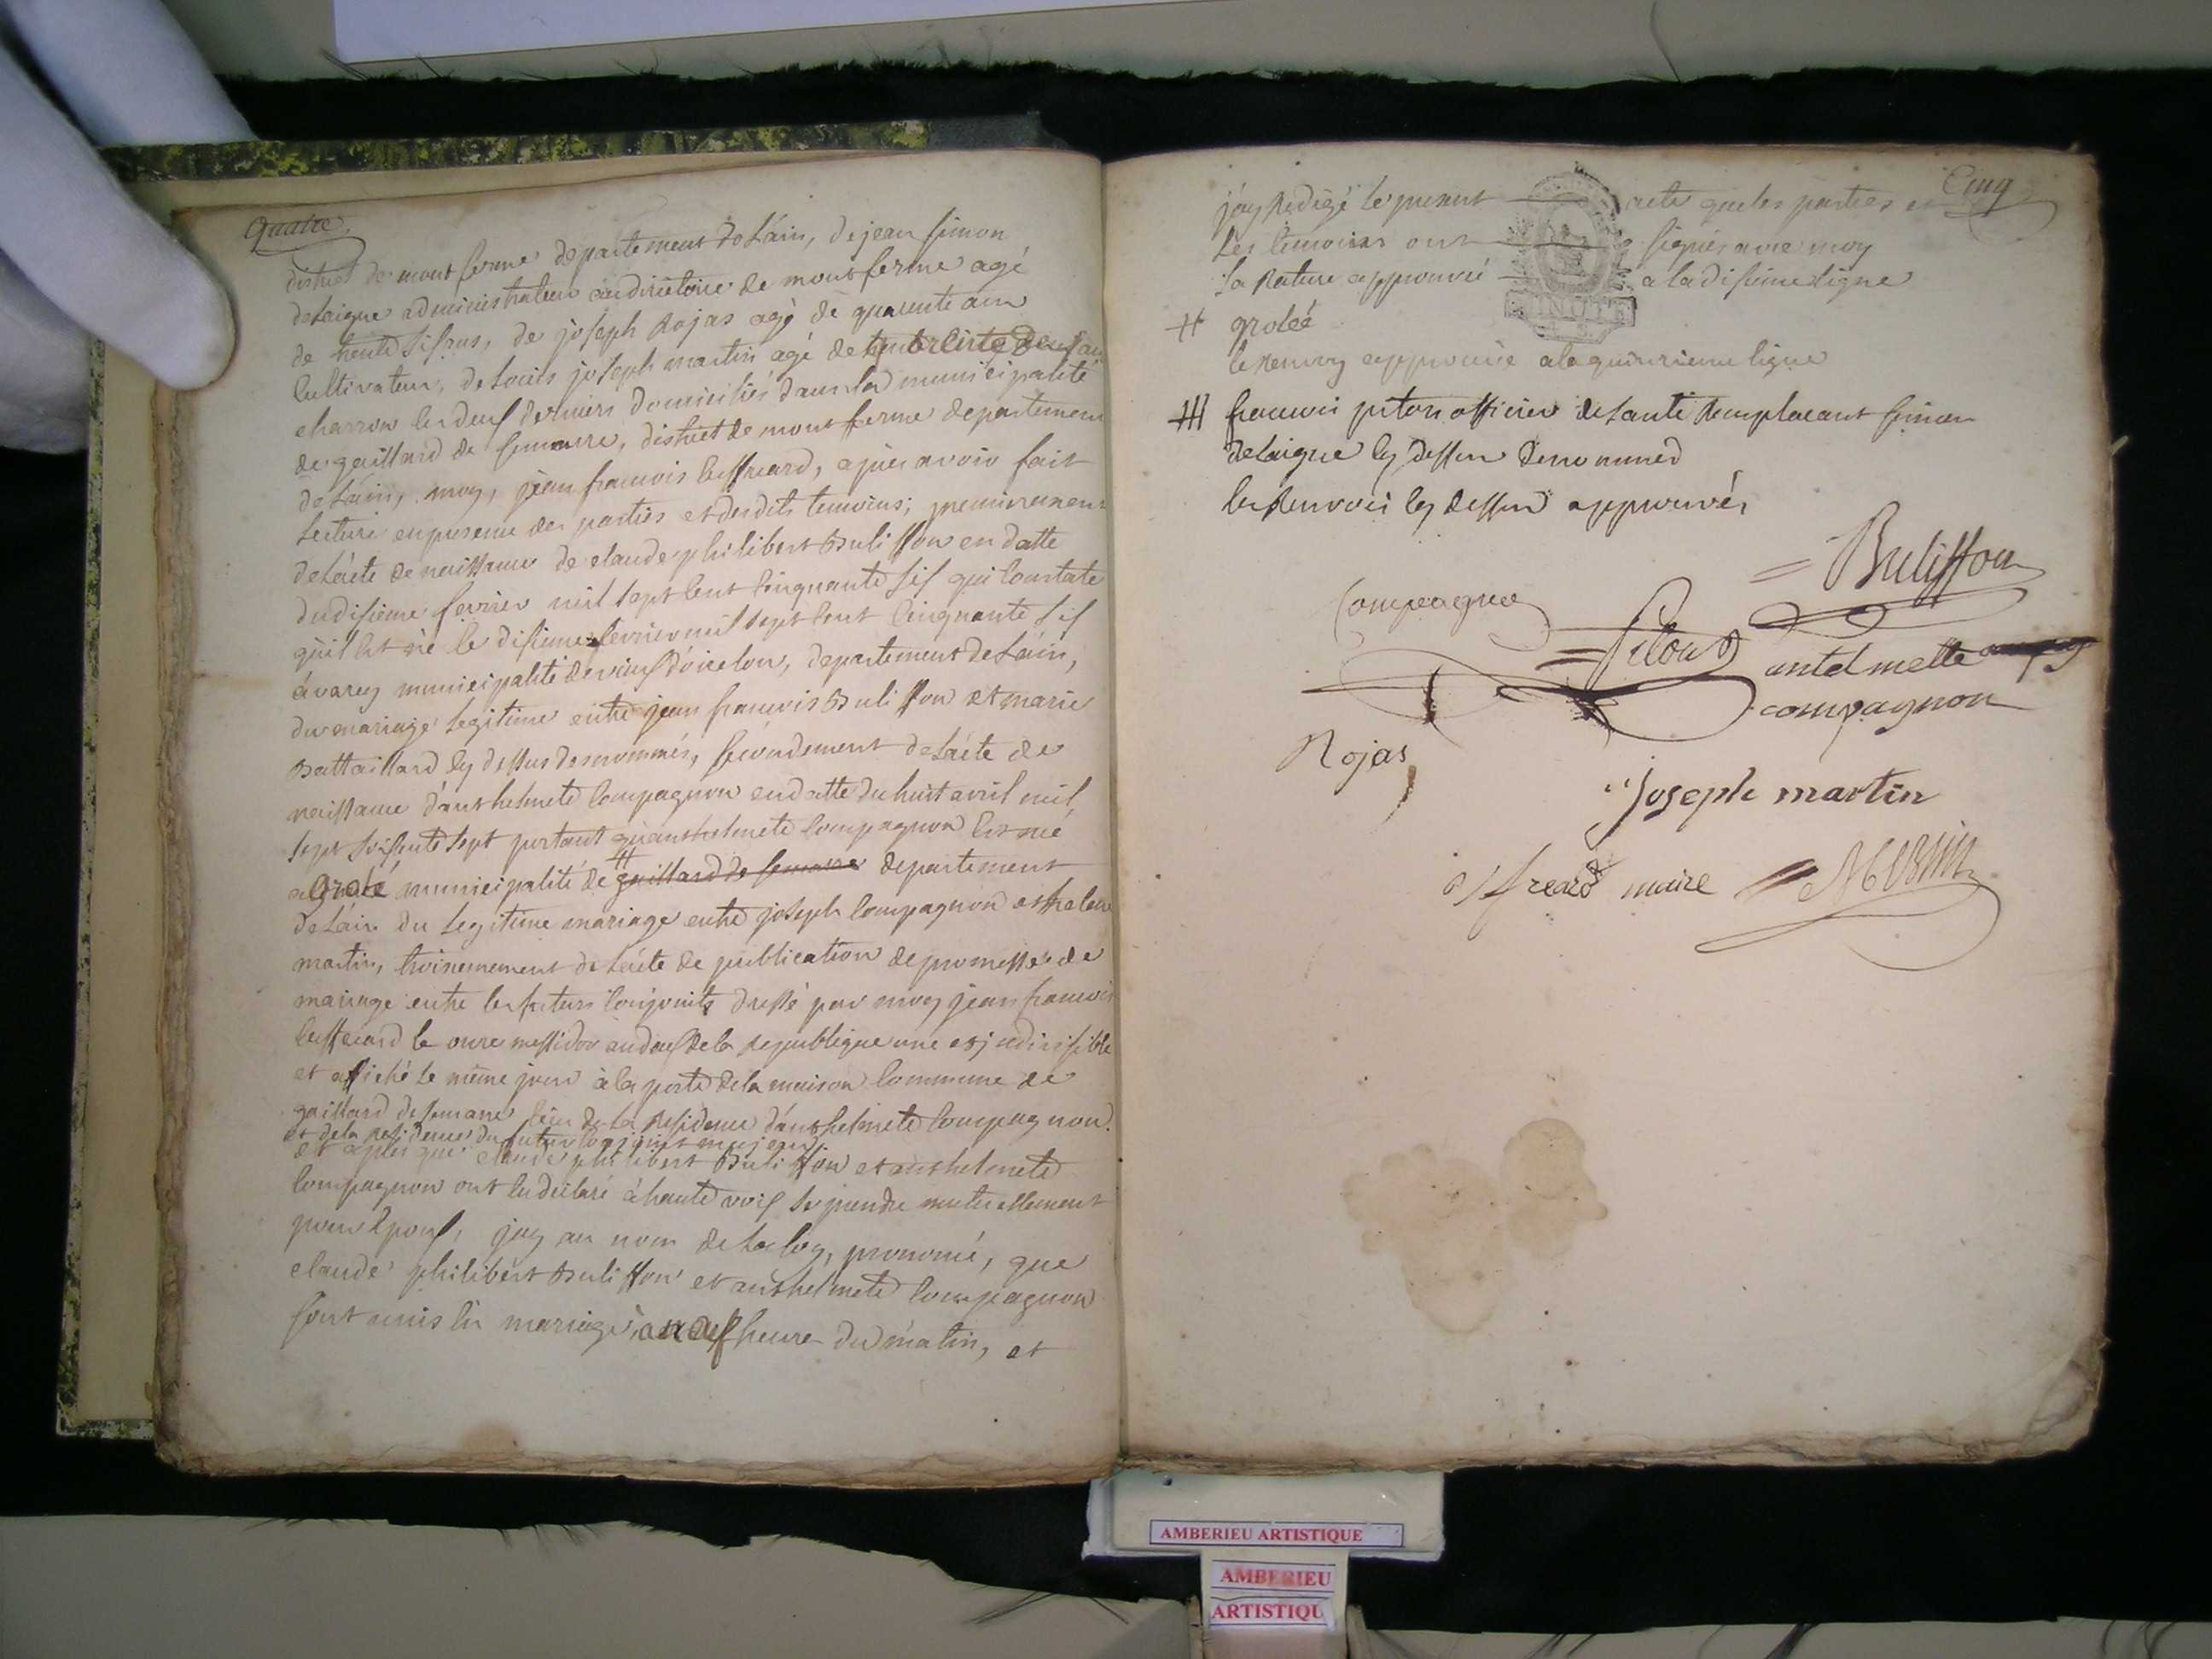 Quatre
district de mont ferme departement de Láin, de jean simon
delaigue administrateur au directoire de mont ferme agé
de trente six ans, de joseph Rojas agé de quarente ans
Cultivateur, de Louis joseph martin agé de trente deux ans
charron les deux derniers domiciliés dans la municipalité
de gaillard de semarre, district de mont ferme departement
de Láin, moy, jean francois
Lecture en presence des parties et desdits temoins; premierement
de Lácte de naissance de claude philibert Bulisson en datte
du dixieme fevrier mil sept cent Cinquante six qui Constate
quil est né le dixieme fevrier mil sept cent Cinquante six
á varey municipalité de departement de Láin,
du mariage Legitime entre jean francois Bulisson et marie
Battaillard cy dessus denommés, secondement de Lácte de
naissance dánthelmete Compagnon en datte du huit avril mil
sept soixente sept portant quánthelmete Compagnon est née
a Grolé municipalité de # gaillard de semarre departement
de Láin du Legitime mariage entre joseph Compagnon et
martin, troisiemement de Lácte de publication de promesses de
mariage entre les futurs Conjoints dressé par moy jean francois
le onze messidor an deux de la republique une et jndivisible
et affiché Le même jour à la porte de la maison Commune de
gaillard de semarre lieu de La Residence dánthelmete Compagnon.
et de la residence du futur Conjoint
et aprés que claude philibert Bulisson et anthelmete
Compagnon ont eu declaré á haute voix se prendre mutuellement
pour Epoux, jay au nom de La loy, prononcé, que
claude philibert Bulisson et anthelmete Compagnon
sont unis En mariage, a neuf heure du matin, et
Cinq
jáy Redigé le present acte que les parties et
Les temoins ont signés avec moy
La Rature approuvé a la dixieme ligne
# grolée
le renvoy approuvé a la quinzieme ligne
francois pitou officier de santé remplacant simon
delaigue cy dessus denommé
les renvois cy dessus approuvés
Bulisson
Compagnon
Pitou
antelmette
compagnon
Rojas
joseph martin
maire
MINUTE
AMBERIEU ARTISTIQUE
AMBERIEU
ARTISTIQU